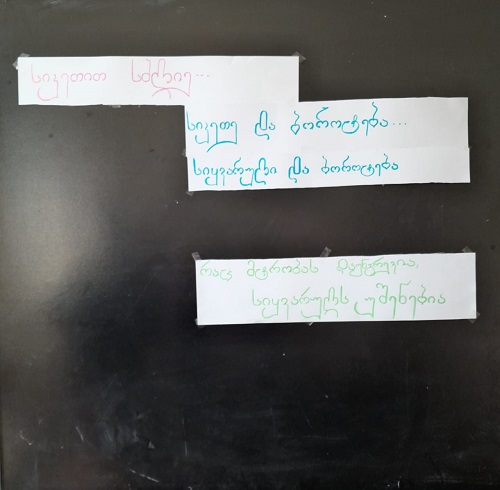 სიკეთით სძლიე...
სიკეთე და ბოროტება...
სიყვარული და ბოროტება
რაც მტრობას დაუნგრევია,
სიყვარულს უშენებია